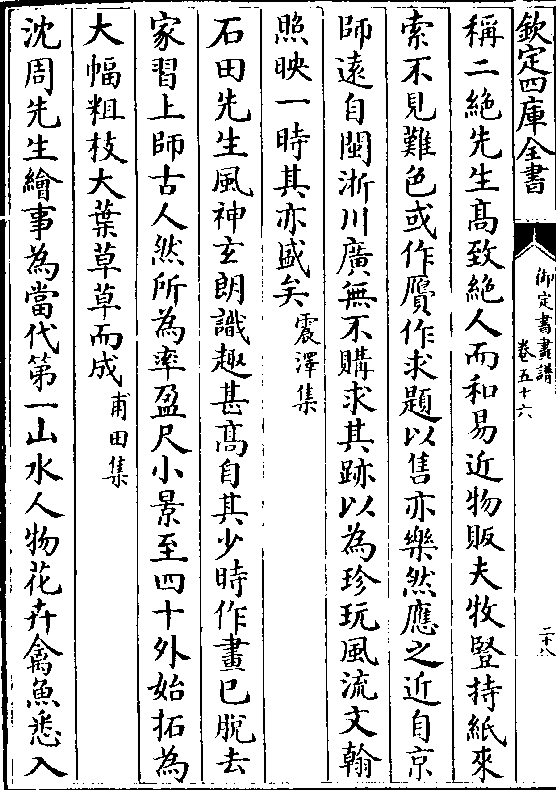 欽定四庫全書
御定書畫譜
卷五十六
二十八
稱二絶先生髙致絶人而和易近物販夫牧豎持紙來
索不見難色或作贋作求題以售亦樂然應之近自京
師逺自閩浙川廣無不購求其跡以為珍玩風流文翰
照映一時其亦盛矣震澤集
石田先生風神玄朗識趣甚髙自其少時作畫已脫去
家習上師古人然所為率盈尺小景至四十外始拓為
大幅粗枝大葉草草而成甫田集
沈周先生繪事為當代第一山水人物花卉禽魚悉入